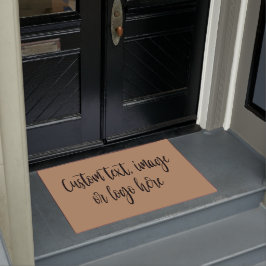 Custom text, image
or logo here